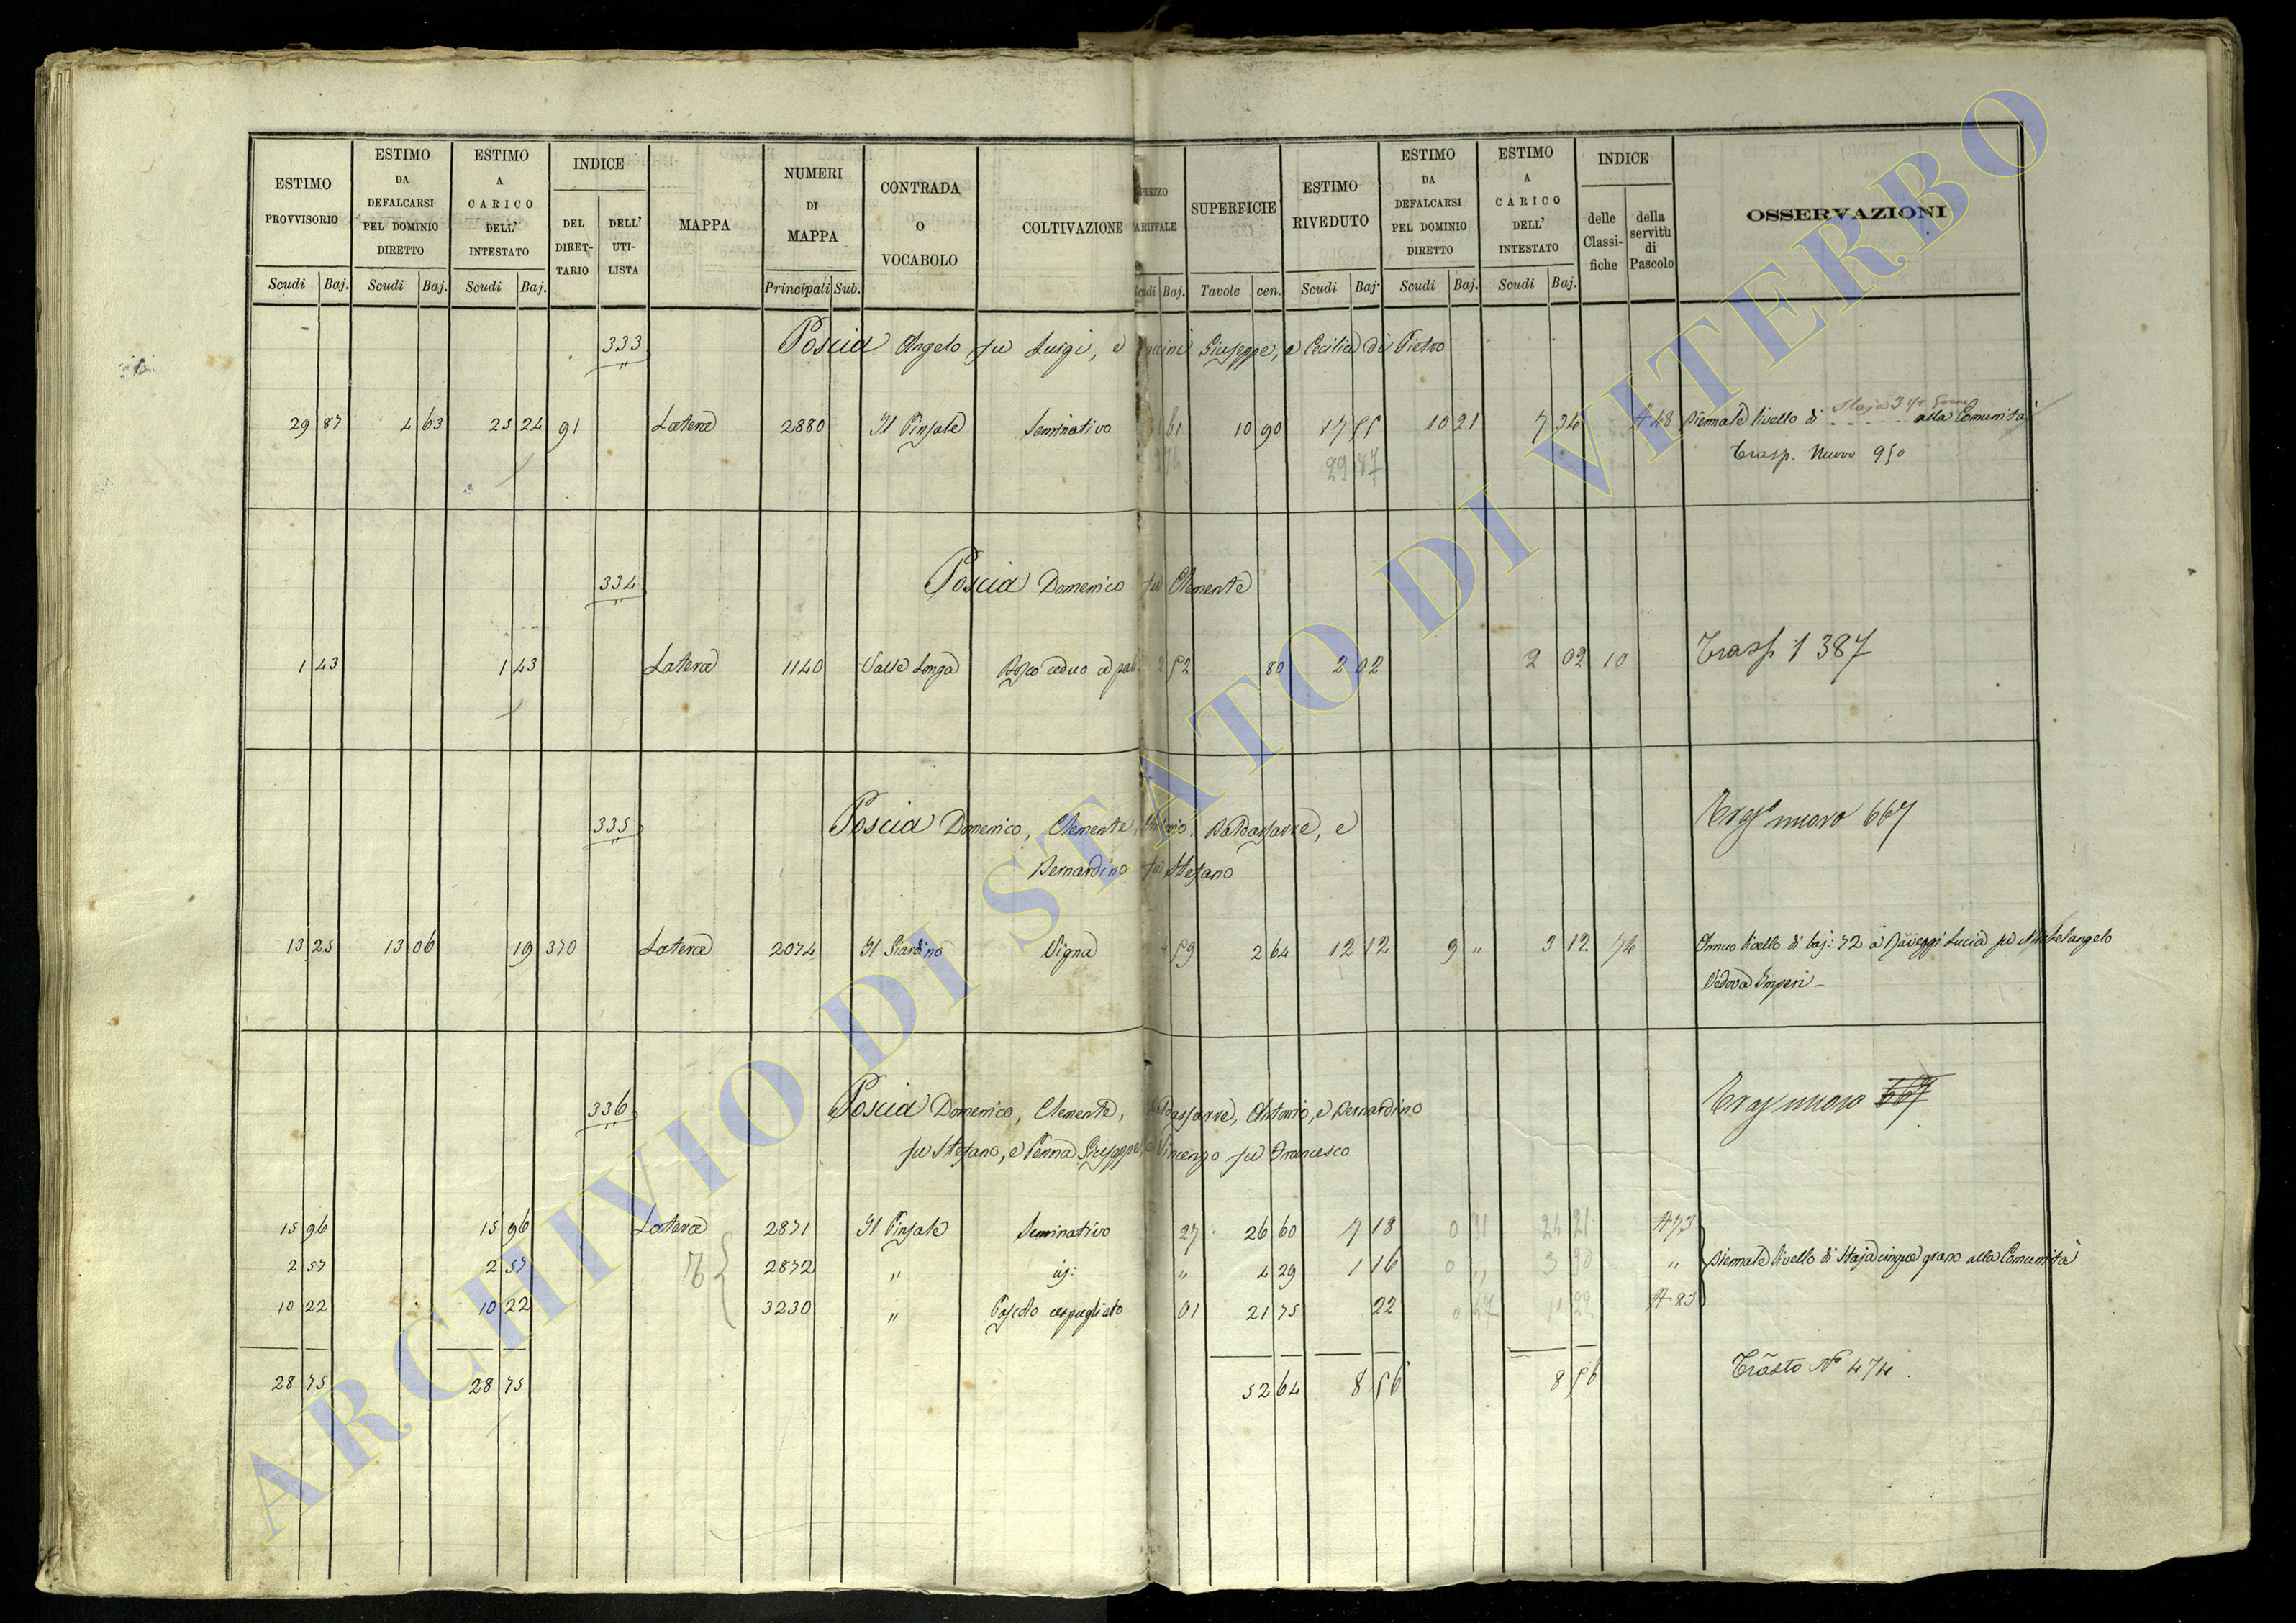 ESTIMO PROVVISORIO Scudi Baj.
ESTIMO DA DEFALCARSI PEL DOMINIO DIRETTO Scudi Baj.
ESTIMO A CARICO DELL' INTESTATO Scudi Baj.
INDICE DEL DIRET-TARIO DELL' UTI-LISTA
MAPPA
NUMERI DI MAPPA Principali Sub.
CONTRADA O VOCABOLO
COLTIVAZIONE
PREZZO TARIFFALE Scudi Baj.
SUPERFICIE Tavole cen.
ESTIMO RIVEDUTO Scudi Baj.
ESTIMO DA DEFALCARSI PEL DOMINIO DIRETTO Scudi Baj.
ESTIMO A CARICO DELL' INTESTATO Scudi Baj.
INDICE delle Classi-fiche della servitù di Pascolo
OSSERVAZIONI
333 Poscia Angelo fu Luigi, e Giuseppe, e Cecilia di Pietro
Staja 3 1/2 Grano
29 87 4 63 25 24 91 Latera 2880 Il Pinsale Seminativo 1 61 10 90 17 55 10 21 7 34 A 48 Biennale livello di . . . . . alla Comunità
29 87 Trasp. Nuovo 950
334 Poscia Domenico fu Clemente
1 43 1 43 Latera 1140 Valle Longa Bosco ceduo a pali 2 52 80 2 02 2 02 10 Trasp. 1387
335 Poscia Domenico, Clemente, Antonio, Baldassarre, e Trasp nuovo 667
Bernardino fu Stefano
13 25 13 06 19 370 Latera 2074 Il Giardino Vigna 4 59 2 64 12 12 9 " 3 12 74 Annuo livello di baj: 72 a Lucia fu Michelangelo
Vedova Imperi -
336 Poscia Domenico, Clemente, Baldassarre, Antonio, e Bernardino Trasp nuovo 667
fu Stefano, e Penna Giuseppe, e Vincenzo fu Francesco
15 96 15 96 Latera 2871 Il Pinsale Seminativo 27 26 60 7 18 0 91 24 21 A 73
2 57 2 57 2872 " id: " 4 29 1 16 0 " 3 90 " Biennale livello di Staja cinque grano alla Comunità
10 22 10 22 3230 " Pascolo cespugliato 01 21 75 22 0 47 A 83
28 75 28 75 52 64 8 56 8 56 Trasto No 474.
ARCHIVIO DI STATO DI VITERBO